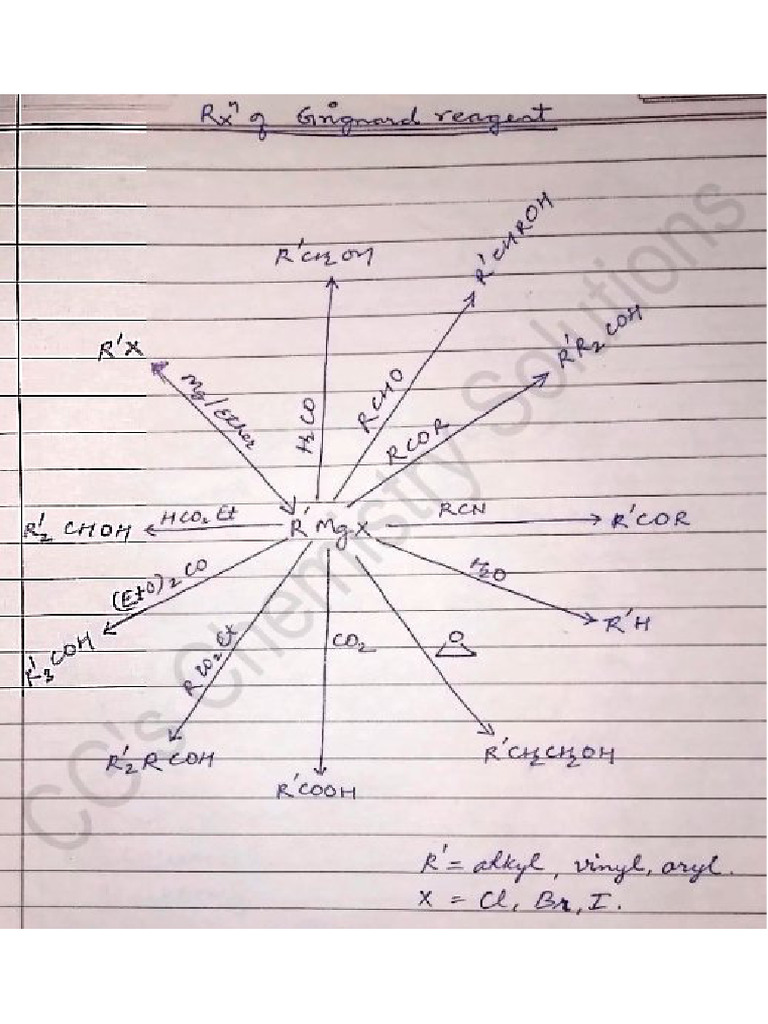 Rxⁿ of Grignard reagent
R'CH₂OH
R'CHROH
R'R₂COH
R'X
Mg/Ether
H₂CO
RCHO
RCOR
R'₂CHOH
HCO₂Et
R'MgX
RCN
R'COR
(EtO)₂CO
H₂O
R'H
R'₃COH
RCO₂Et
CO₂
O
R'₂RCOH
R'COOH
R'CH₂CH₂OH
R' = alkyl, vinyl, aryl.
X = Cl, Br, I.
CC's Chemistry Solutions